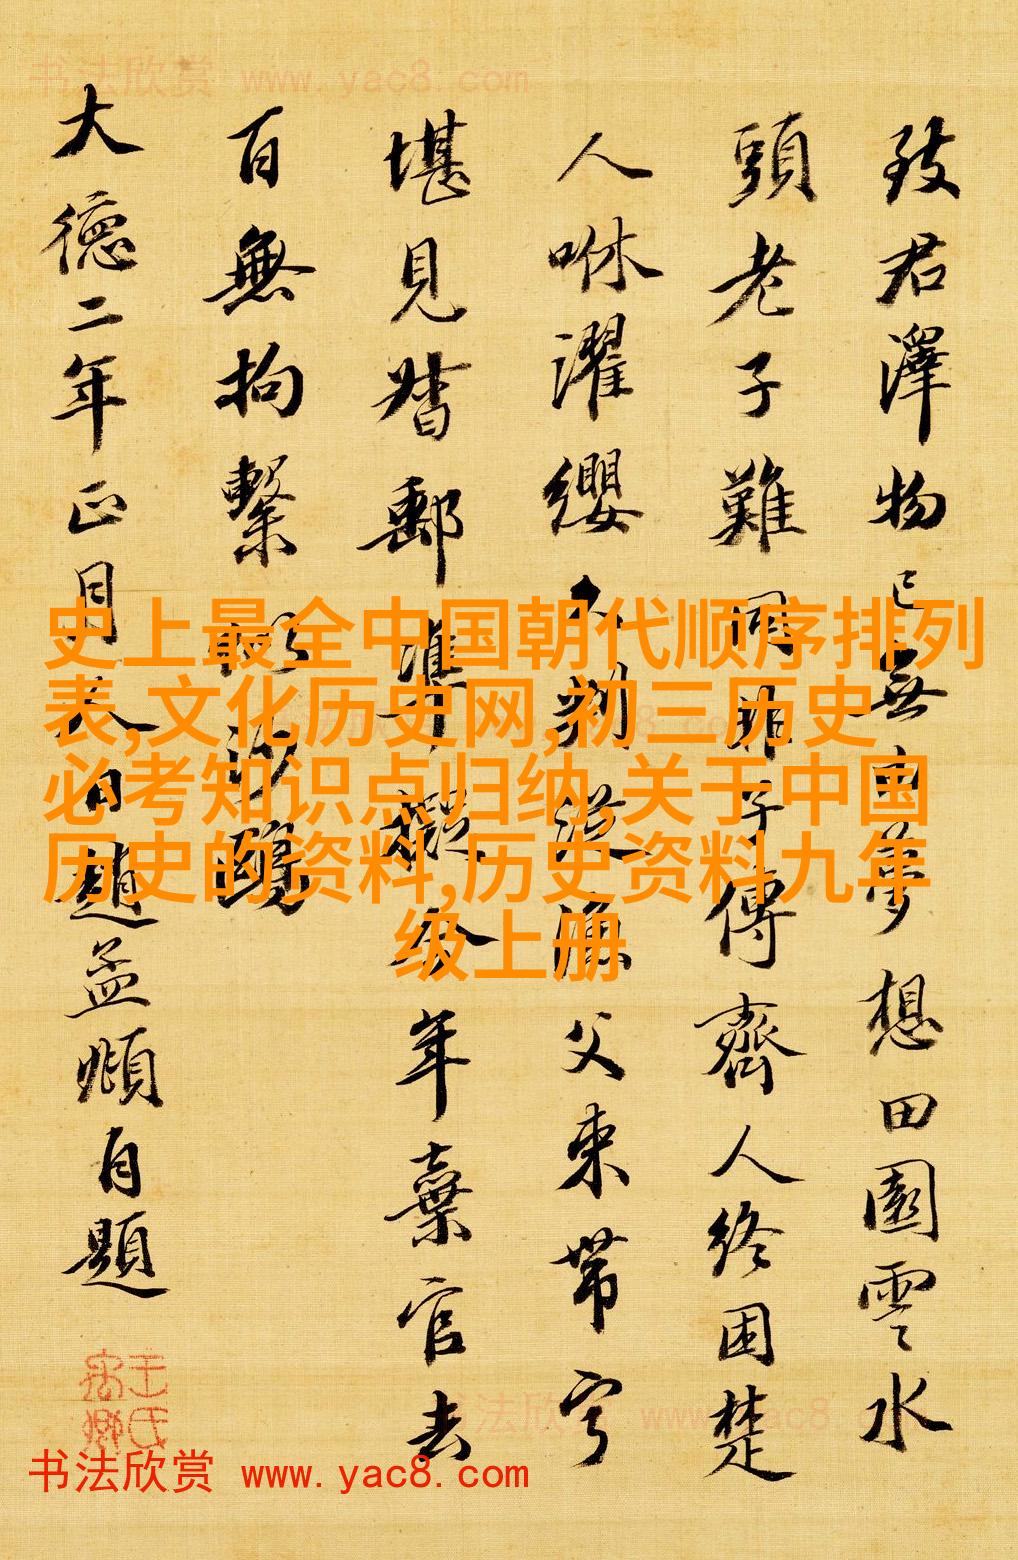 书法欣赏 www.yac8.com
致君澤物已無由夢想田園雲水
頭老子難同非子傳齊人終困楚
人咻濯纓久判從漁父束帶寧
堪見督郵準擬今年棄官去
百無拘繫沙鷗
大德二年正月人日趙孟頫自題
史上最全中国朝代顺序排列
表,文化历史网,初三历史
必考知识点归纳,关于中国
历史的资料,历史资料九年
级上册
书法欣赏 www.yac8.com
书法欣赏 www.yac8.com